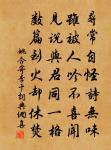 尋常自怪詩無味
雖被人吟不喜聞
見說與君同一格
數篇到火却休焚
姚合寄李干詞典網